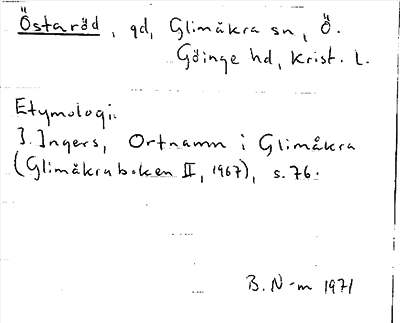 Östaröd, gd, Glimåkra sn, Ö.
Göinge hd, Krist. l.
Etymologi:
I. Ingers, Ortnamn i Glimåkra
(Glimåkraboken II, 1967), s. 76.
B. N-m 1971